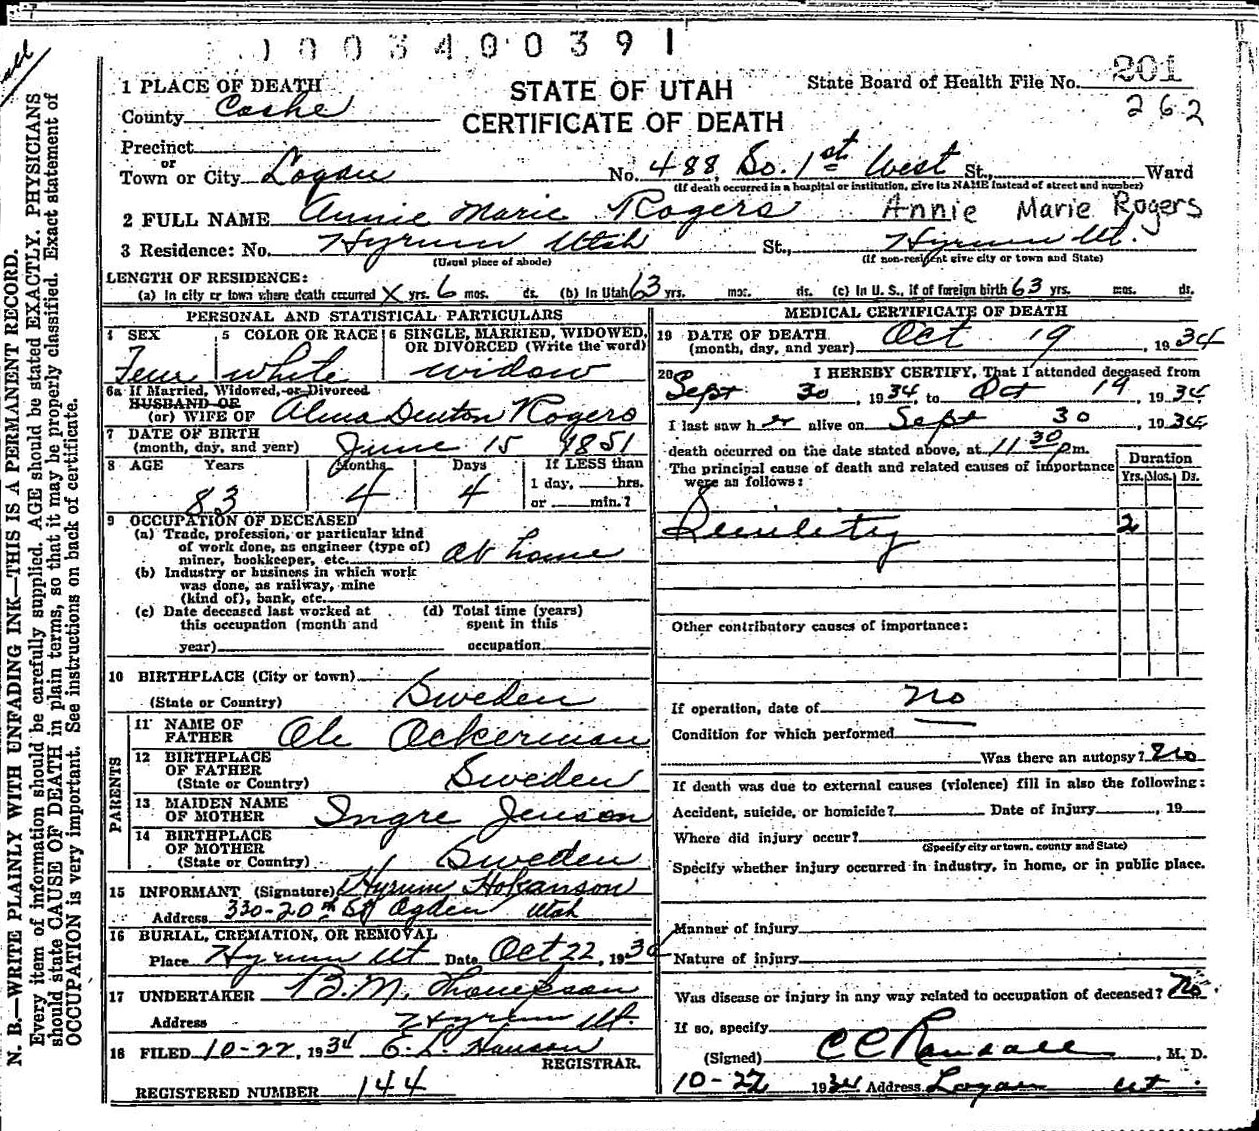 1003400391
1 PLACE OF DEATH
STATE OF UTAH
State Board of Health File No. 201
County Cache
CERTIFICATE OF DEATH
262
Precinct
or
Town or City Logan No. 488 So. 1st West St., Ward
(If death occurred in a hospital or institution, give its NAME instead of street and number)
2 FULL NAME Annie Marie Rogers Annie Marie Rogers
3 Residence: No. Hyrum Utah St., Hyrum Ut.
(Usual place of abode) (If non-resident give city or town and State)
LENGTH OF RESIDENCE:
(a) In city or town where death occurred X yrs. 6 mos. ds. (b) In Utah 63 yrs. mos. ds. (c) In U. S., if of foreign birth 63 yrs. mos. ds.
PERSONAL AND STATISTICAL PARTICULARS
4 SEX 5 COLOR OR RACE 6 SINGLE, MARRIED, WIDOWED, OR DIVORCED (Write the word)
Fem white widow
6a If Married, Widowed, or Divorced
HUSBAND OF
(or) WIFE OF Alma Denton Rogers
7 DATE OF BIRTH
(month, day, and year) June 15 1851
8 AGE Years Months Days If LESS than
1 day, hrs.
83 4 4 or min.?
9 OCCUPATION OF DECEASED
(a) Trade, profession, or particular kind
of work done, as engineer (type of)
miner, bookkeeper, etc. at home
(b) Industry or business in which work
was done, as railway, mine
(kind of), bank, etc.
(c) Date deceased last worked at (d) Total time (years)
this occupation (month and spent in this
year) occupation.
10 BIRTHPLACE (City or town)
(State or Country) Sweden
PARENTS
11 NAME OF
FATHER Ole Ockerman
12 BIRTHPLACE
OF FATHER
(State or Country) Sweden
13 MAIDEN NAME
OF MOTHER Ingre Jenson
14 BIRTHPLACE
OF MOTHER
(State or Country) Sweden
15 INFORMANT (Signature) Hyrum Hokanson
Address 330-20th St Ogden Utah
16 BURIAL, CREMATION, OR REMOVAL
Place Hyrum Ut Date Oct 22, 1934
17 UNDERTAKER B. M. Thompson
Address Hyrum Ut.
18 FILED 10-22, 1934 E. L. Hanson
REGISTRAR.
REGISTERED NUMBER 144
MEDICAL CERTIFICATE OF DEATH
19 DATE OF DEATH
(month, day, and year) Oct 19, 1934
20 I HEREBY CERTIFY, That I attended deceased from
Sept 30, 1934, to Oct 19, 1934
I last saw her alive on Sept 30, 1934
death occurred on the date stated above, at 11 30 pm.
The principal cause of death and related causes of importance
were as follows:
Duration
Yrs. Mos. Ds.
Senility 2
Other contributory causes of importance:
If operation, date of no
Condition for which performed
Was there an autopsy? no
If death was due to external causes (violence) fill in also the following:
Accident, suicide, or homicide? Date of injury, 19
Where did injury occur?
(Specify city or town, county and State)
Specify whether injury occurred in industry, in home, or in public place.
Manner of injury
Nature of injury
Was disease or injury in any way related to occupation of deceased? No
If so, specify
(Signed) C C Randall, M. D.
10-22 1934 Address Logan Ut.
N. B.—WRITE PLAINLY WITH UNFADING INK—THIS IS A PERMANENT RECORD.
Every item of information should be carefully supplied. AGE should be stated EXACTLY. PHYSICIANS
should state CAUSE OF DEATH in plain terms, so that it may be properly classified. Exact statement of
OCCUPATION is very important. See instructions on back of certificate.